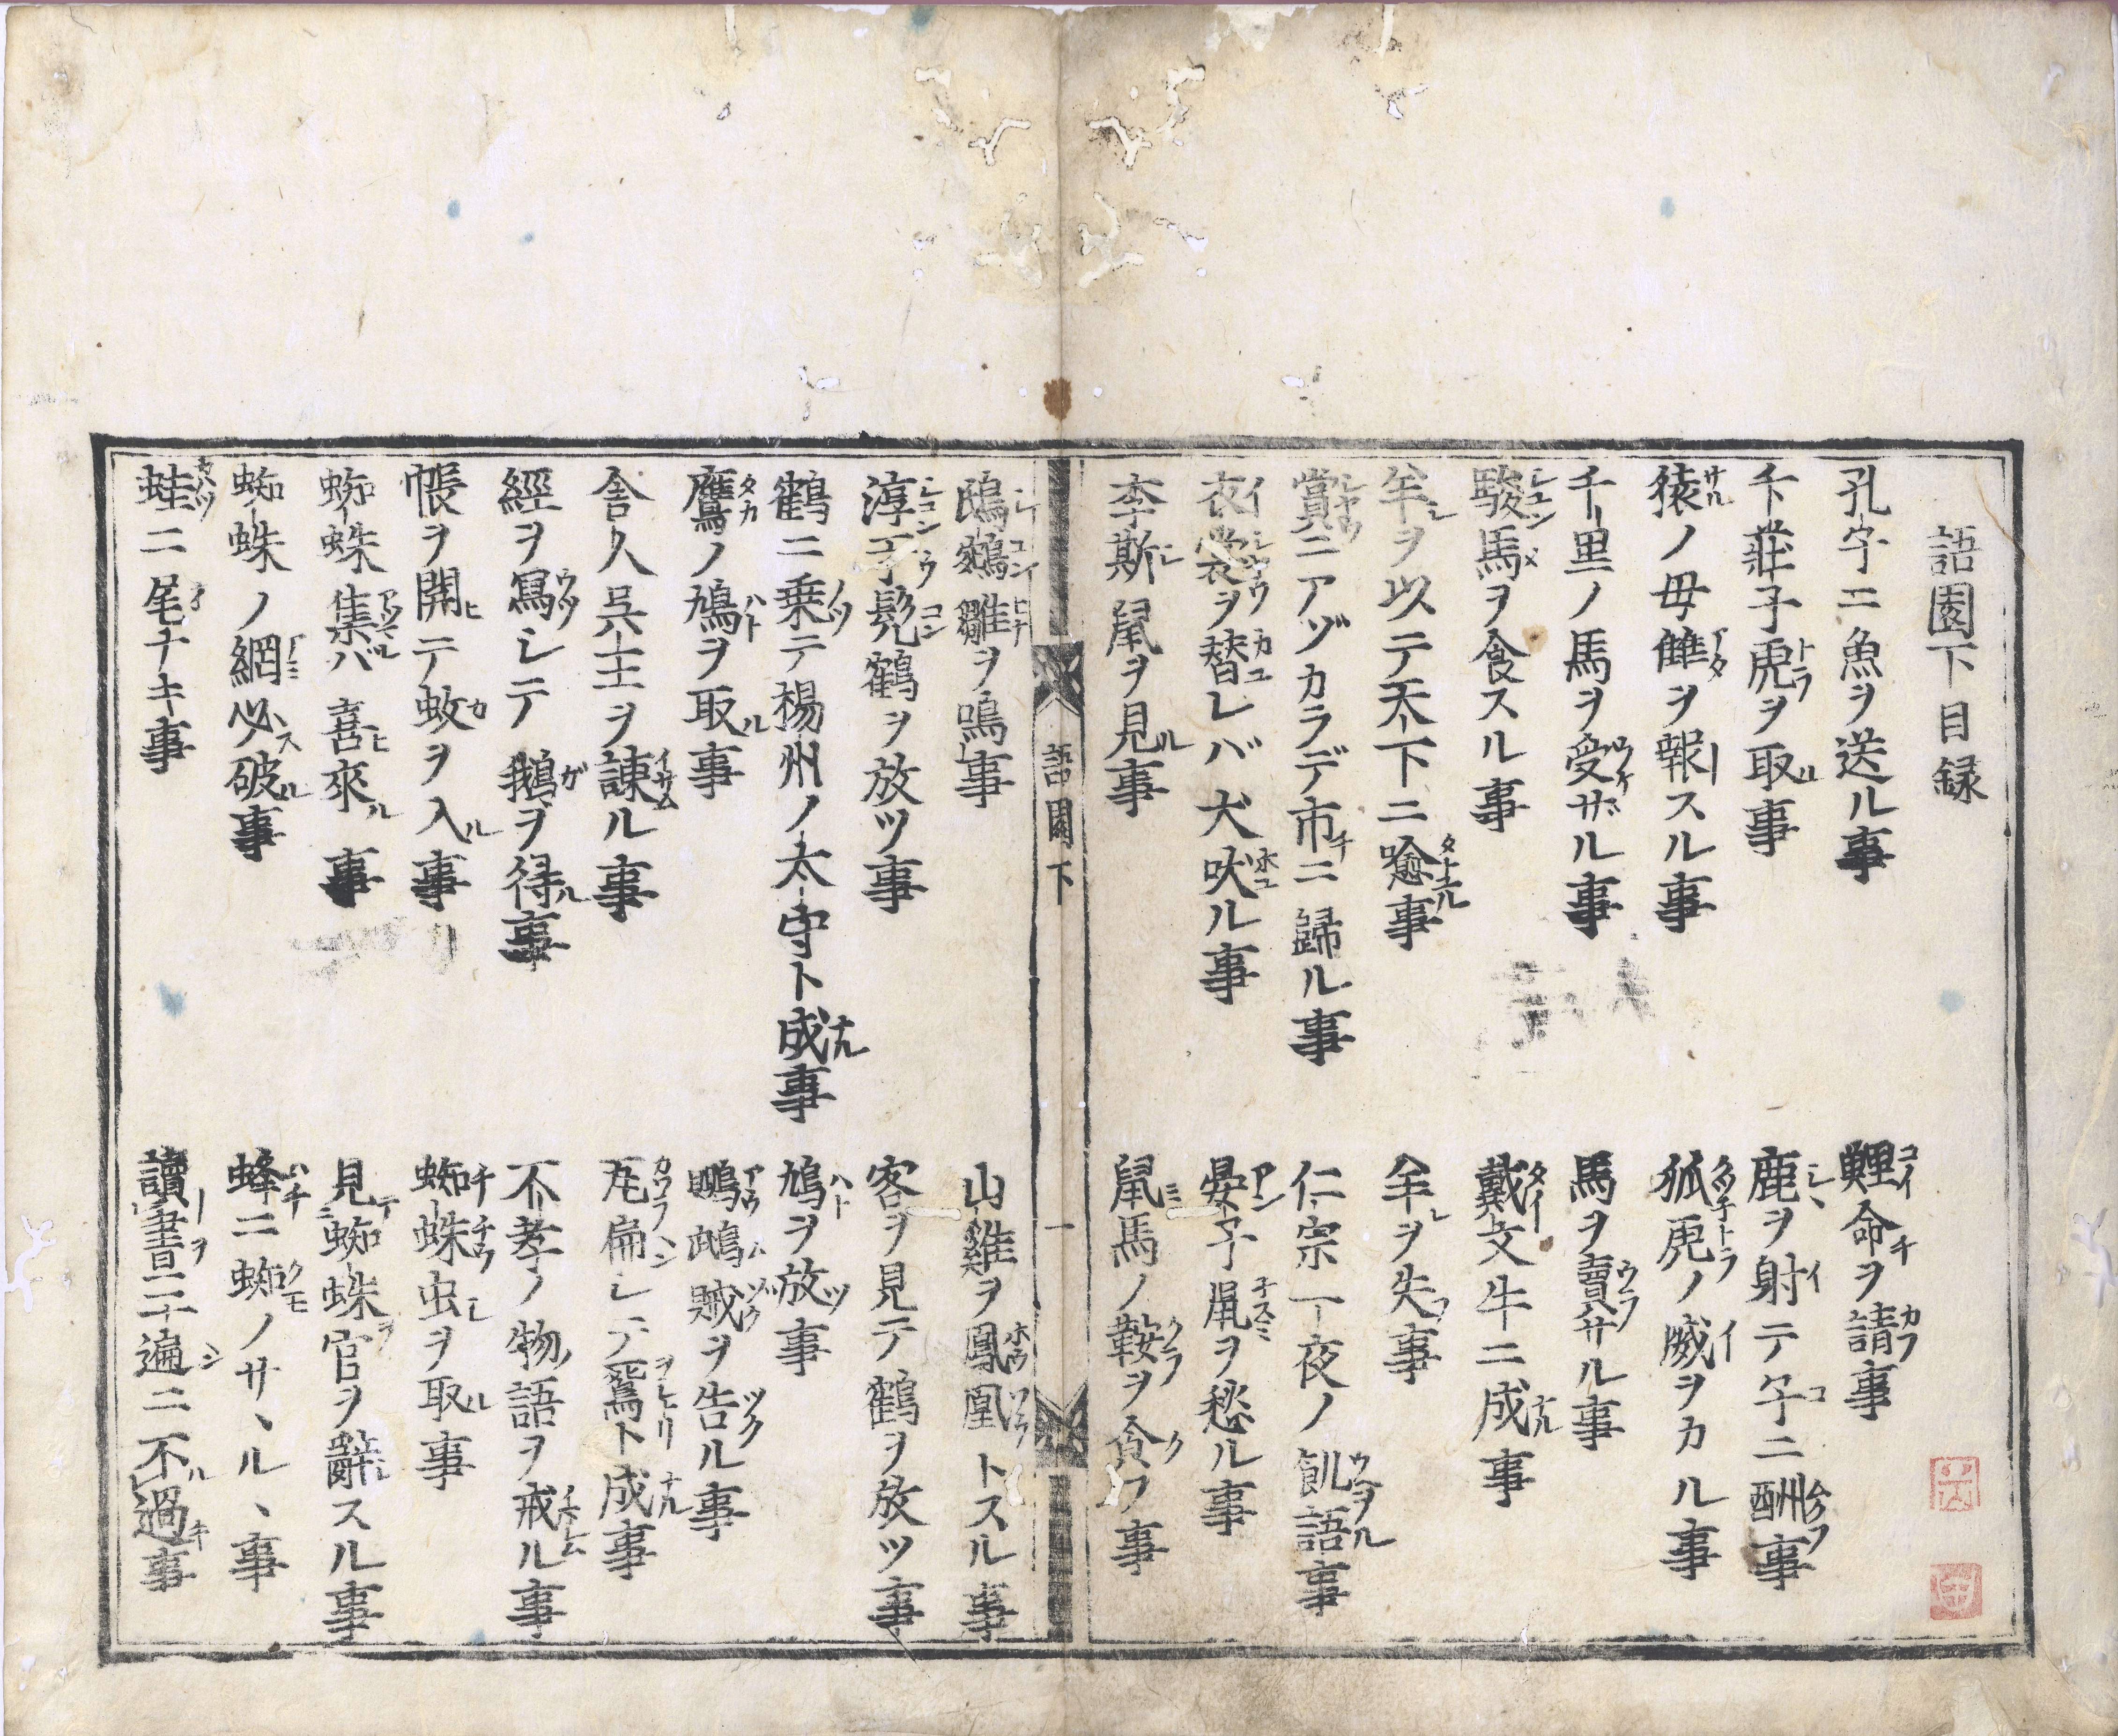 語園下目録
孔子ニ魚ヲ送ル事
鯉命ヲ請事
卞莊子虎ヲ取事
鹿ヲ射テ子ニ酬事
猿ノ母雠ヲ報スル事
狐虎ノ威ヲカル事
千里ノ馬ヲ受ザル事
馬ヲ賣サル事
駿馬ヲ食スル事
戴文牛ニ成事
羊ヲ以テ天下ニ喩事
羊ヲ失事
賞ニアヅカラデ市ニ歸ル事
仁宗一夜ノ飢語事
衣裳ヲ替レバ犬吠ル事
晏子鼠ヲ愁ル事
李斯鼠ヲ見事
鼠馬ノ鞍ヲ食フ事
語園下
一
鴟鵂雛ヲ鳴事
山雞ヲ鳳凰トスル事
淳于髠鶴ヲ放ツ事
客ヲ見テ鶴ヲ放ツ事
鶴ニ乗テ楊州ノ太守ト成事
鳩ヲ放事
鷹ノ鳩ヲ取事
鸚鵡賊ヲ告ル事
舎人呉王ヲ諫ル事
瓦扁シテ鴛ト成事
經ヲ寫シテ鵝ヲ得事
不孝ノ物語ヲ戒ル事
帳ヲ開テ蚊ヲ入事
蜘蛛虫ヲ取事
蜘蛛集バ喜來事
見蜘蛛官ヲ辭スル事
蜘蛛ノ網必破事
蜂ニ蜘ノサヽルヽ事
蛙ニ尾ナキ事
讀書三十遍ニ不過事